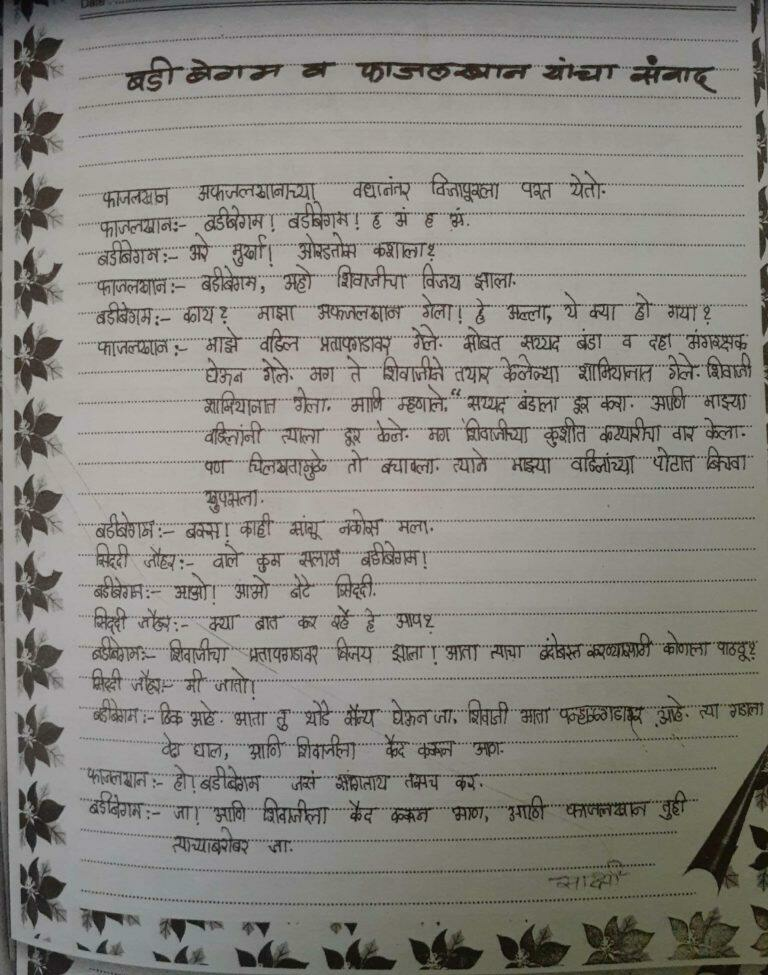 Date
बडी बेगम व फाजलखान यांचा संवाद
फाजलखान अफजलखानाच्या वधानंतर विजापूरला परत येतो.
फाजलखान:- बडीबेगम! बडीबेगम! ह अं ह अं.
बडीबेगम:- अरे मुर्खा! ओरडतोस कशाला?
फाजलखान:- बडीबेगम, अहो शिवाजीचा विजय झाला.
बडीबेगम:- काय? माझा अफजलखान गेला! हे अल्ला, ये क्या हो गया?
फाजलखान:- माझे वडिल प्रतापगडावर गेले. सोबत सय्यद बंडा व दहा अंगरक्षक
घेऊन गेले. मग ते शिवाजीने तयार केलेल्या शामियानात गेले. शिवाजी
शामियानात आला. आणि म्हणाले, "सय्यद बंडाला दूर करा. आणि माझ्या
वडिलांनी त्याला दूर केले. मग शिवाजीच्या कुशीत कट्यारीचा वार केला.
पण चिलखतामुळे तो बचावला. त्याने माझ्या वडिलांच्या पोटात बिचवा
खुपसला.
बडीबेगम:- बस्स! काही सांगू नकोस मला.
सिद्दी जौहर:- वाले कुम सलाम बडीबेगम!
बडीबेगम:- आओ! आओ बेटे सिद्दी.
सिद्दी जौहर:- क्या बात कर रहे हे आप?
बडीबेगम:- शिवाजीचा प्रतापगडावर विजय झाला! आता त्याचा बंदोबस्त करण्यासाठी कोणाला पाठवू?
सिद्दी जौहर:- मी जातो!
बडीबेगम:- ठिक आहे. आता तु थोडे सैन्य घेऊन जा. शिवाजी आता पन्हाळगडावर आहे. त्या गडाला
वेढा घाल, आणि शिवाजीला कैद करून आण.
फाजलखान:- हो! बडीबेगम जसं सांगताय तसच कर.
बडीबेगम:- जा! आणि शिवाजीला कैद करून आण, आणि फाजलखान तुही
त्याच्याबरोबर जा.
साक्षी